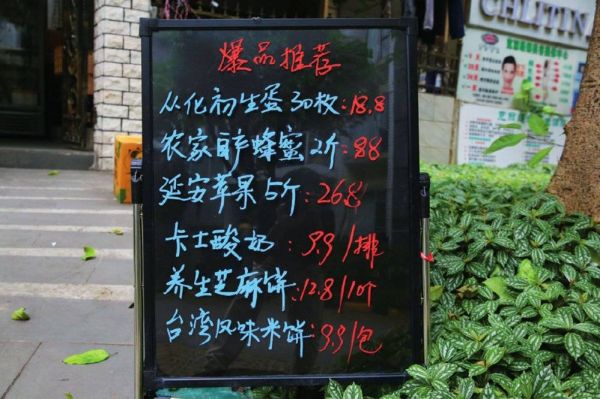 爆品推荐
从化初生蛋30枚:18.8
农家自产蜂蜜2斤:88
延安苹果5斤:26.8
卡士酸奶:9.9/排
养生芝麻饼:12.8/1斤
台湾风味米饼:9.9/包
CHLITIN